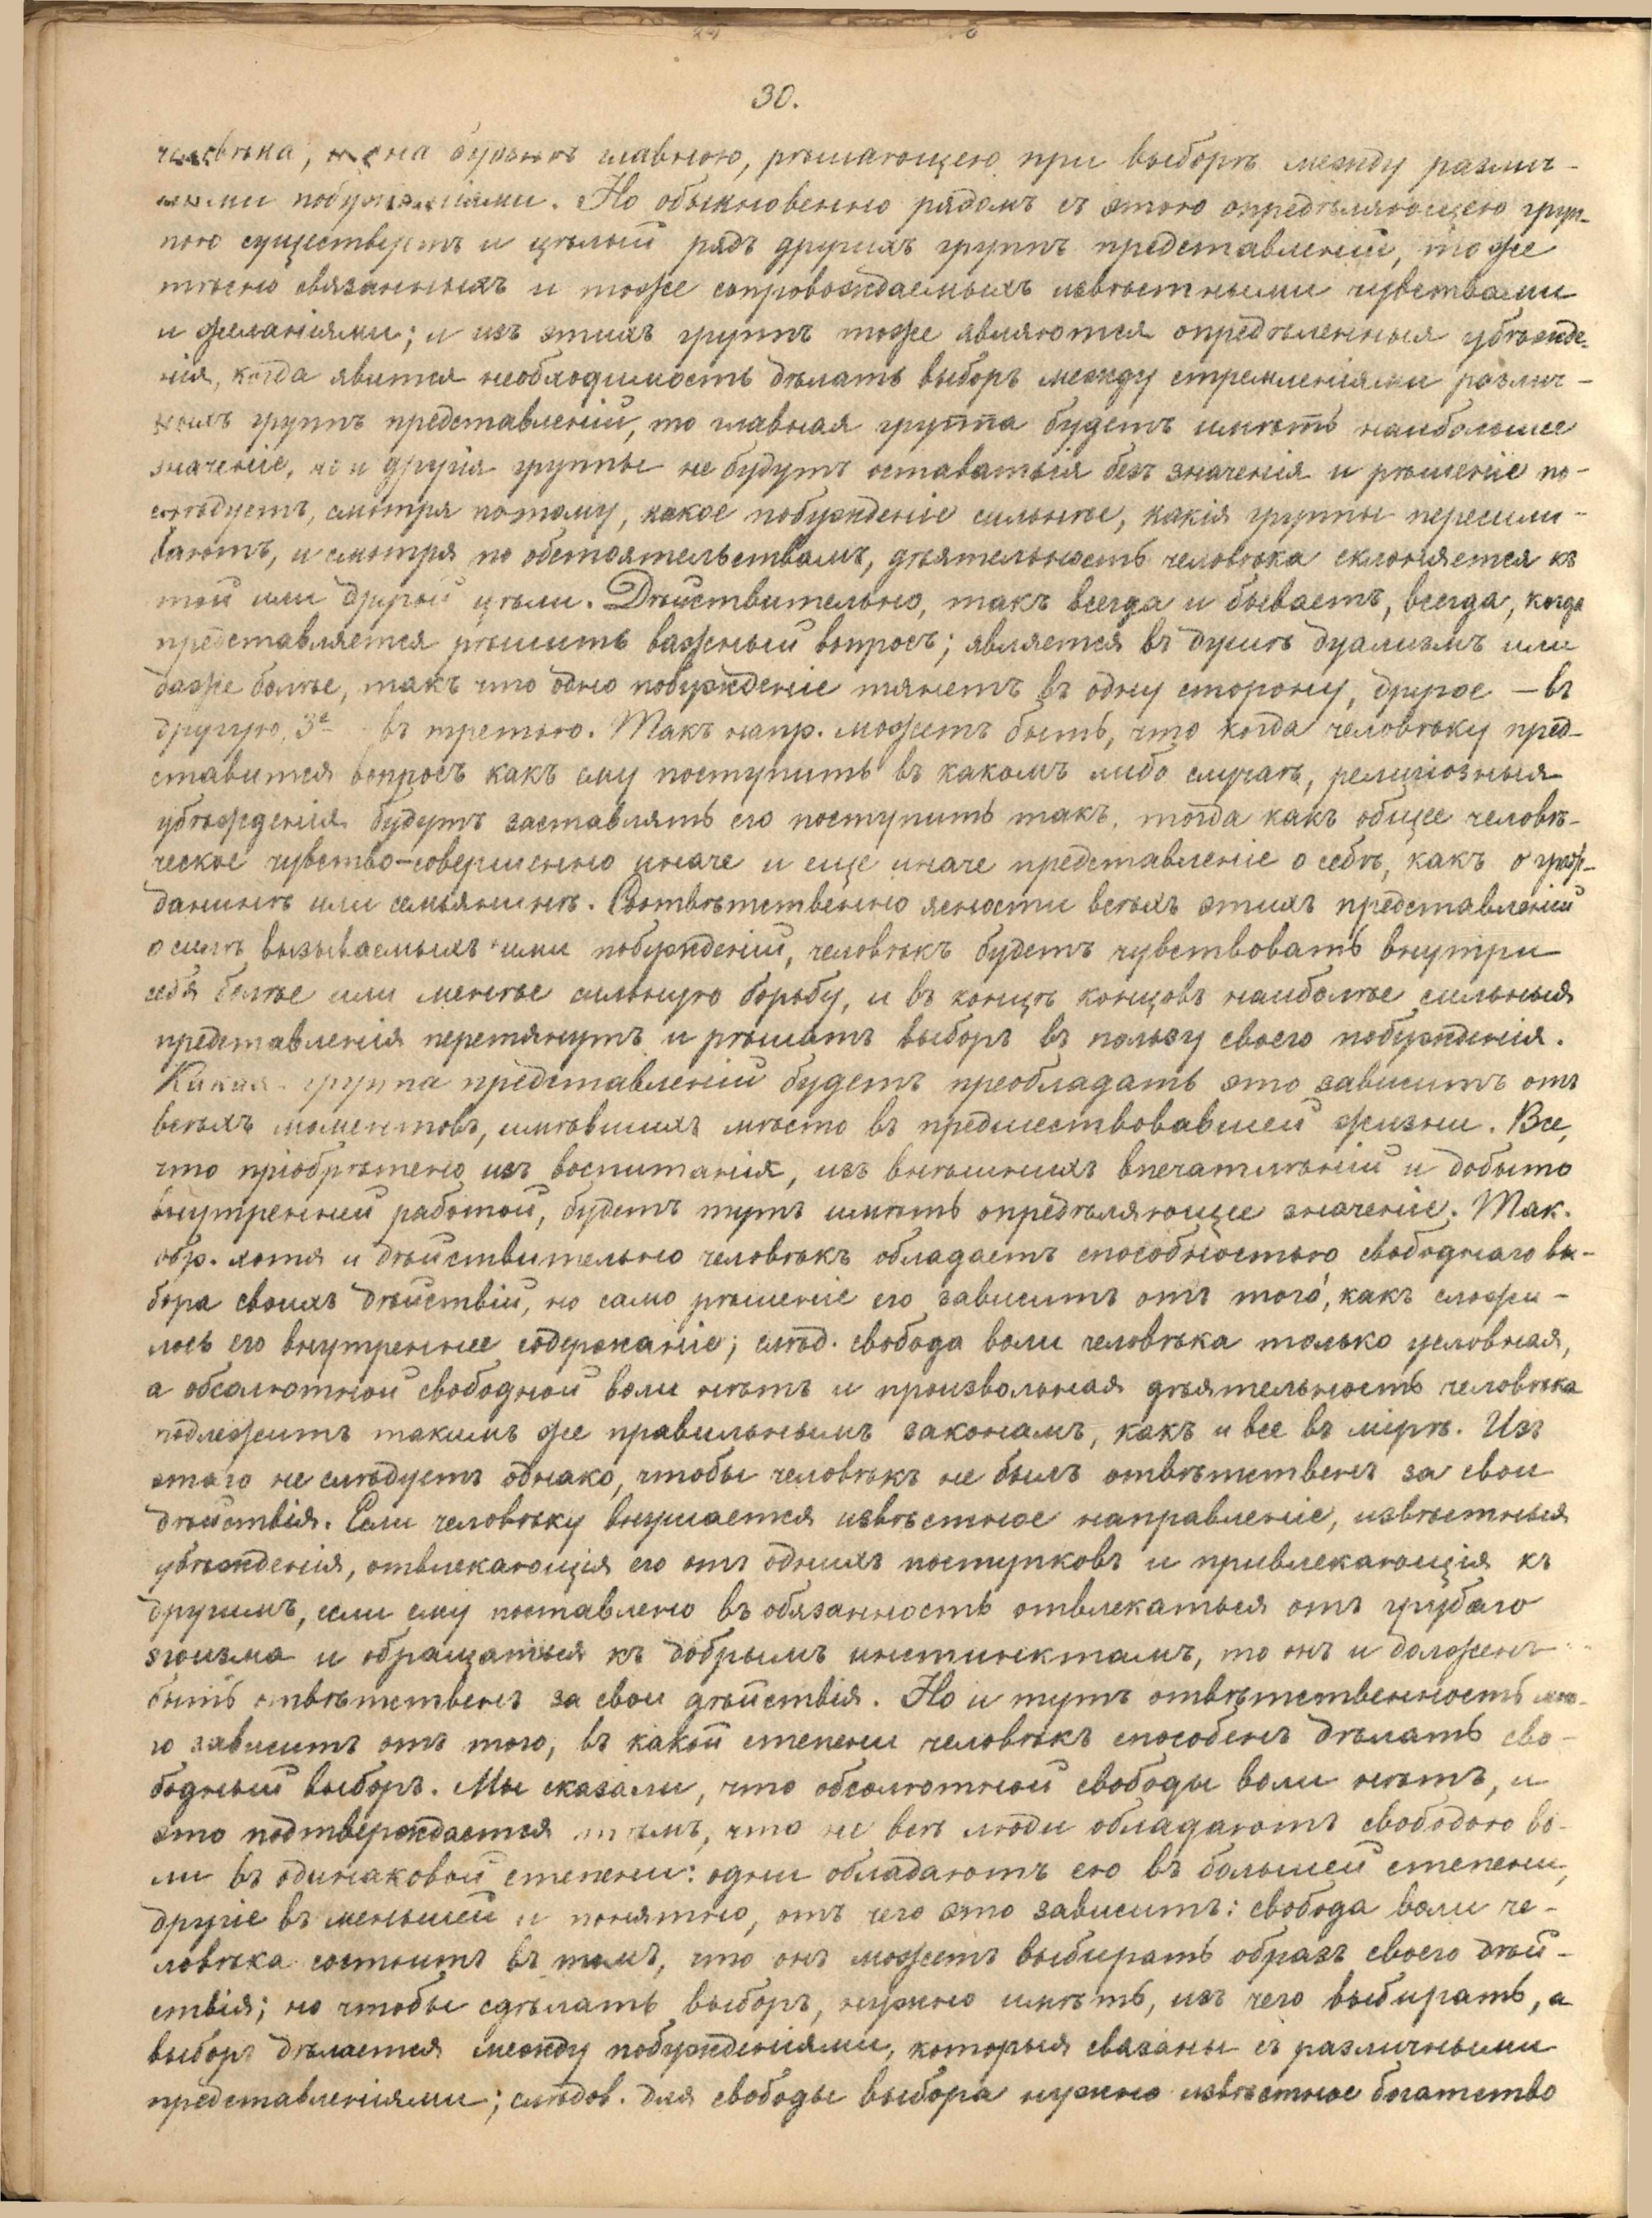 30.
человѣка, и она будетъ главною, рѣшающею при выборѣ между различ-
ными побужденіями. Но обыкновенно рядомъ съ этою опредѣляющею груп-
пою существуетъ и цѣлый рядъ другихъ группъ представленій, тоже
тѣсно связанныхъ и тоже сопровождаемыхъ извѣстными чувствами
и желаніями; и изъ этихъ группъ тоже являются опредѣленныя убѣжде-
нія, когда явится необходимость дѣлать выборъ между стремленіями различ-
ныхъ группъ представленій, то главная группа будетъ имѣть наибольшее
значеніе, но и другія группы не будутъ оставаться безъ значенія и рѣшеніе по-
слѣдуетъ, смотря потому, какое побужденіе сильнѣе, какія группы пересили-
ваютъ, и смотря по обстоятельствамъ, дѣятельность человѣка склоняется къ
той или другой цѣли. Дѣйствительно, такъ всегда и бываетъ, всегда, когда
представляется рѣшить важный вопросъ; является въ душѣ дуализмъ или
даже болѣе, такъ что одно побужденіе тянетъ въ одну сторону, другое — въ
другую, 3е въ третью. Такъ напр. можетъ быть, что когда человѣку пред-
ставится вопросъ какъ ему поступить въ какомъ либо случаѣ, религіозныя
убѣжденія будутъ заставлять его поступить такъ, тогда какъ общее человѣ-
ческое чувство-совершенно иначе и еще иначе представленіе о себѣ, какъ о граж-
данинѣ или семьянинѣ. Соотвѣтственно ясности всѣхъ этихъ представленій
о силѣ вызываемыхъ ими побужденій, человѣкъ будетъ чувствовать внутри
себя болѣе или менѣе сильную борьбу, и въ концѣ концовъ наиболѣе сильныя
представленія перетянутъ и рѣшатъ выборъ въ пользу своего побужденія.
Какая группа представленій будетъ преобладать это зависитъ отъ
всѣхъ моментовъ, имѣвшихъ мѣсто въ предшествовавшей жизни. Все,
что пріобрѣтено изъ воспитанія, изъ внѣшнихъ впечатлѣній и добыто
внутренней работой, будетъ тутъ имѣть опредѣляющее значеніе. Так.
обр. хотя и дѣйствительно человѣкъ обладаетъ способностью свободнаго вы-
бора своихъ дѣйствій, но само рѣшеніе его зависитъ отъ того, какъ сложи-
лось его внутреннее содержаніе; слѣд. свобода воли человѣка только условная,
а обсолютной свободной воли нѣтъ и произвольная дѣятельность человѣка
подлежитъ такимъ же правильнымъ законамъ, какъ и все въ мірѣ. Изъ
этаго не слѣдуетъ однако, чтобы человѣкъ не былъ отвѣтственъ за свои
дѣйствія. Если человѣку внушается извѣстное направленіе, извѣстныя
убѣжденія, отвлекающія его отъ однихъ поступковъ и привлекающія къ
другимъ, если ему поставлено въ обязанность отвлекаться отъ грубаго
эгоизма и обращаться къ добрымъ инстинктамъ, то онъ и долженъ
быть отвѣтственъ за свои дѣйствія. Но и тутъ отвѣтственность мно-
го зависитъ отъ того, въ какой степени человѣкъ способенъ дѣлать сво-
бодный выборъ. Мы сказали, что обсолютной свободы воли нѣтъ, и
это подтверждается тѣмъ, что не всѣ люди обладаютъ свободою во-
ли въ одинаковой степени: одни обладаютъ ею въ большей степени,
другіе въ меньшей и понятно, отъ чего это зависитъ: свобода воли че-
ловѣка состоитъ въ томъ, что онъ можетъ выбирать образъ своего дѣй-
ствія; но чтобы сдѣлать выборъ, нужно имѣть, изъ чего выбирать, а
выборъ дѣлается между побужденіями, которыя связаны съ различными
представленіями; слѣдов. для свободы выбора нужно извѣстное богатство